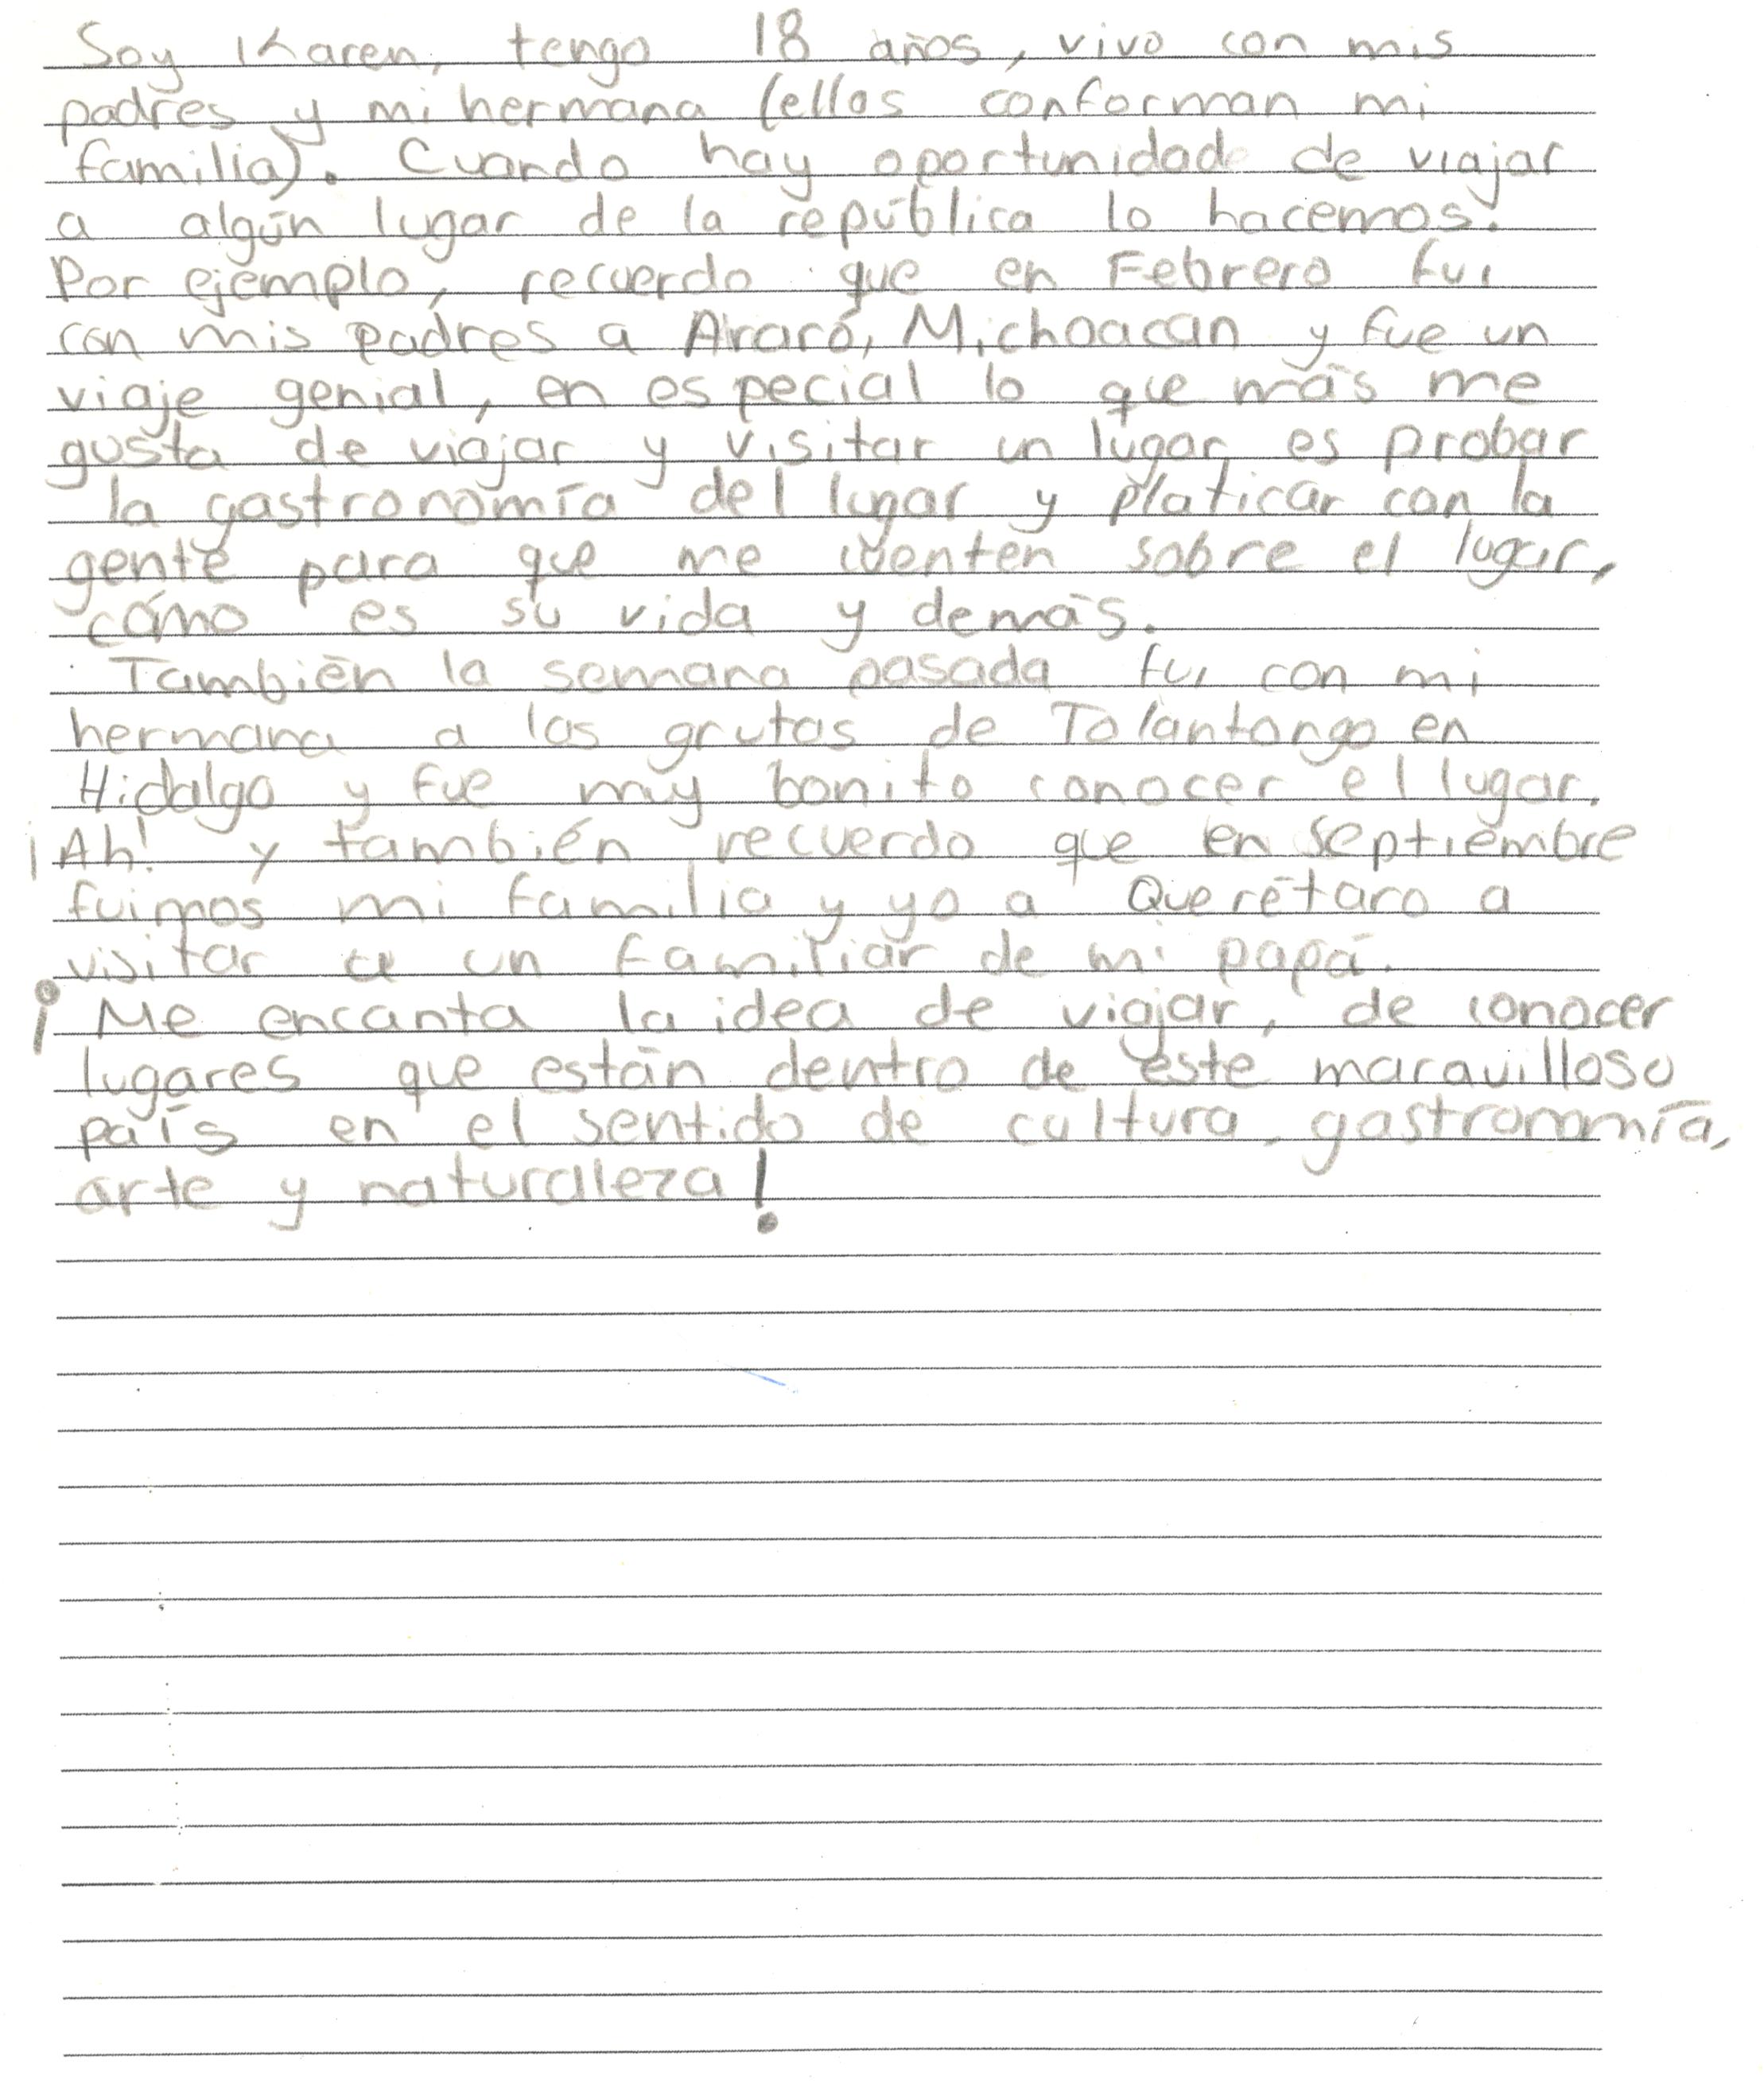 Soy Karen, tengo 18 años, vivo con mis
padres y mi hermana (ellos conforman mi
familia). Cuando hay oportunidad de viajar
a algún lugar de la república lo hacemos.
Por ejemplo, recuerdo que en Febrero fui
con mis padres a Araró, Michoacan y fue un
viaje genial, en especial lo que más me
gusta de viajar y visitar un lugar es probar
la gastronomía del lugar y platicar con la
gente para que me cuenten sobre el lugar,
cómo es su vida y demás.
También la semana pasada fui con mi
hermana a las grutas de Tolantongo en
Hidalgo y fue muy bonito conocer el lugar.
¡Ah! y también recuerdo que en septiembre
fuimos mi familia y yo a Querétaro a
visitar a un familiar de mi papá.
¡Me encanta la idea de viajar, de conocer
lugares que están dentro de este maravilloso
país en el sentido de cultura, gastronomía,
arte y naturaleza!